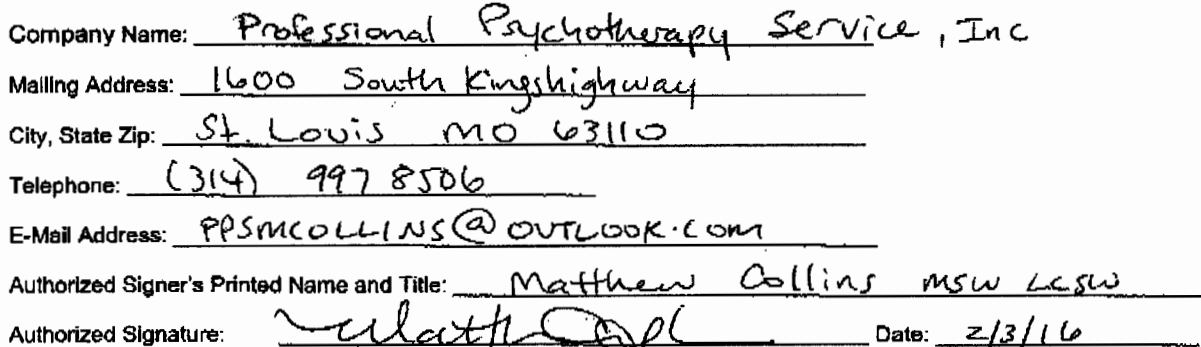 Company Name: Professional Psychotherapy Service, Inc
Mailing Address: 1600 South Kingshighway
City, State Zip: St. Louis MO 63110
Telephone: (314) 997 8506
E-Mail Address: PPSMCOLLINS@OUTLOOK.COM
Authorized Signer's Printed Name and Title: Matthew Collins MSW LCSW
Authorized Signature: Date: 2/3/16